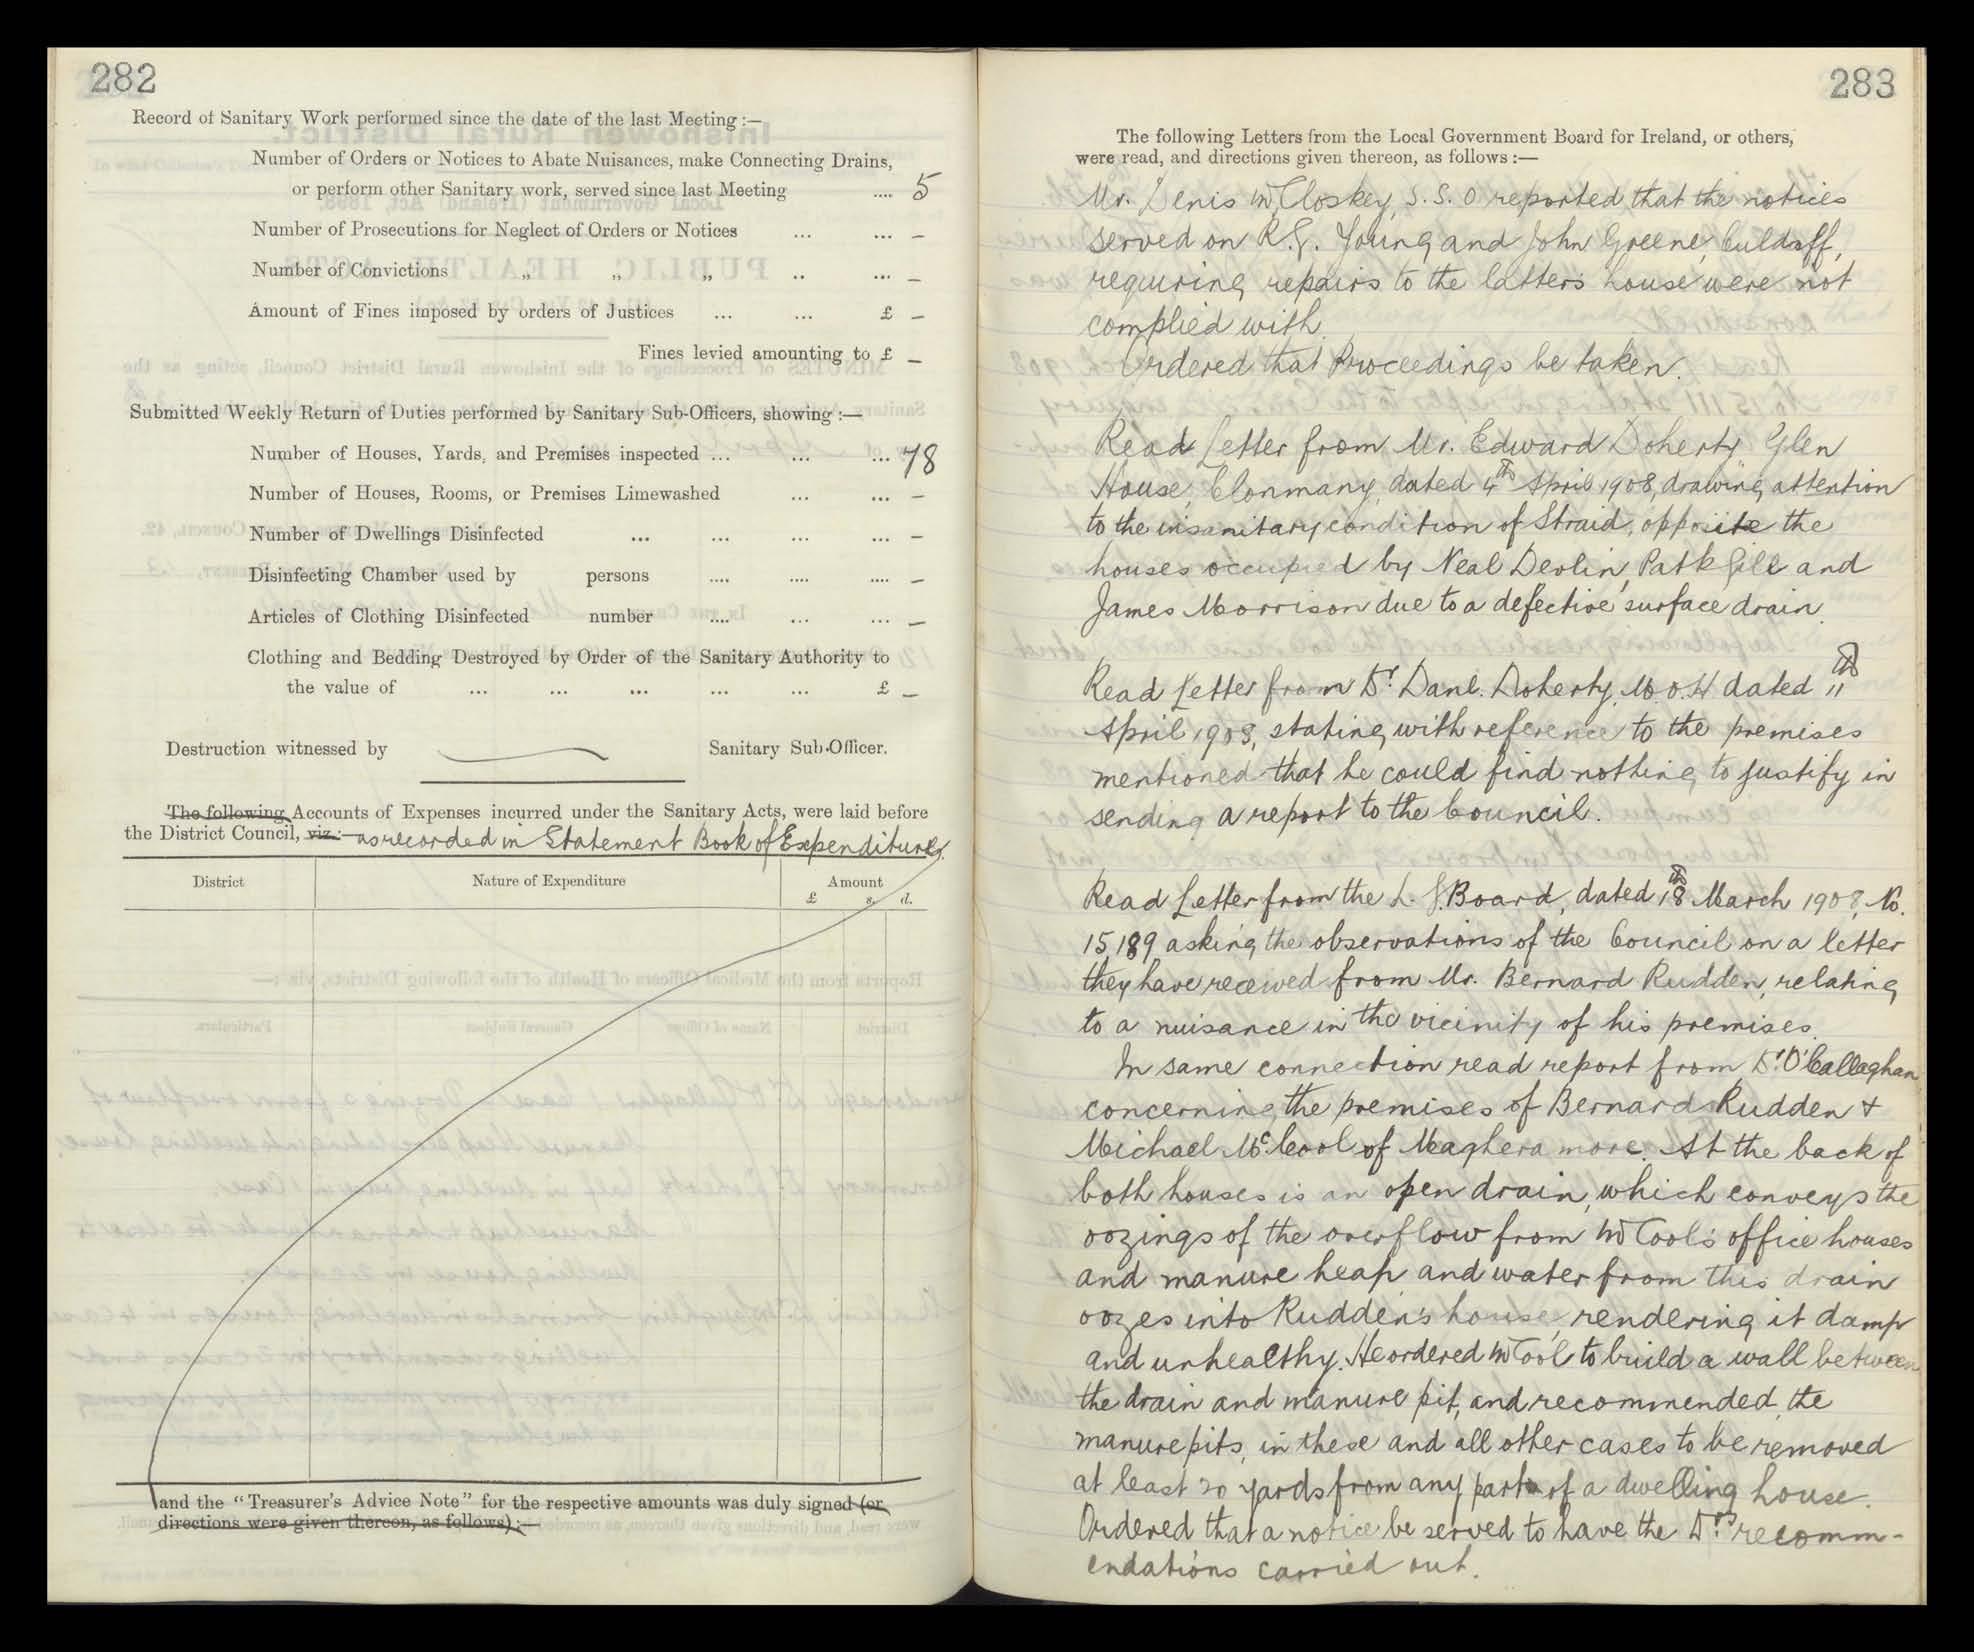 282
Record of Sanitary Work performed since the date of the last Meeting :—
Number of Orders or Notices to Abate Nuisances, make Connecting Drains,
or perform other Sanitary work, served since last Meeting .... 5
Number of Prosecutions for Neglect of Orders or Notices ... ... —
Number of Convictions „ „ „ .. ... —
Amount of Fines imposed by orders of Justices ... ... £ —
Fines levied amounting to £ —
Submitted Weekly Return of Duties performed by Sanitary Sub-Officers, showing :—
Number of Houses, Yards, and Premises inspected ... ... ... 78
Number of Houses, Rooms, or Premises Limewashed ... ... —
Number of Dwellings Disinfected ... ... ... ... —
Disinfecting Chamber used by persons .... .... .... —
Articles of Clothing Disinfected number .... ... ... —
Clothing and Bedding Destroyed by Order of the Sanitary Authority to
the value of ... ... ... ... ... £ —
Destruction witnessed by Sanitary Sub-Officer.
The following Accounts of Expenses incurred under the Sanitary Acts, were laid before
the District Council, viz.:— as recorded in Statement Book of Expenditure.
District Nature of Expenditure Amount
£ s. d.
and the "Treasurer's Advice Note" for the respective amounts was duly signed (or
directions were given thereon, as follows) :—
283
The following Letters from the Local Government Board for Ireland, or others,
were read, and directions given thereon, as follows :—
Mr. Denis McCloskey, S. S. O reported that the notices
served on R.G. Young and John Greene, Culdaff,
requiring repairs to the latter's house were not
complied with.
Ordered that Proceedings be taken.
Read Letter from Mr. Edward Doherty Glen
House, Clonmany, dated 4th April 1908, drawing attention
to the insanitary condition of Straid, opposite the
houses occupied by Neal Devlin, Patk Gill and
James Morrison due to a defective surface drain.
Read Letter from Dr. Danl. Doherty, M.O.H dated 11th
April 1908, stating with reference to the premises
mentioned that he could find nothing to justify in
sending a report to the Council.
Read Letter from the L. G. Board, dated 18th March 1908, No.
15,189 asking the observations of the Council on a letter
they have received from Mr. Bernard Rudden, relating
to a nuisance in the vicinity of his premises.
In same connection read report from Dr. O'Callaghan
concerning the premises of Bernard Rudden &
Michael McCool of Maghera more. At the back of
both houses is an open drain, which conveys the
oozings of the overflow from McCool's office houses
and manure heap and water from this drain
oozes into Rudden's house, rendering it damp
and unhealthy. He ordered McCool to build a wall between
the drain and manure pit, and recommended the
manure pits, in these and all other cases to be removed
at least 20 yards from any part of a dwelling house.
Ordered that a notice be served to have the Dr's recomm-
endations carried out.